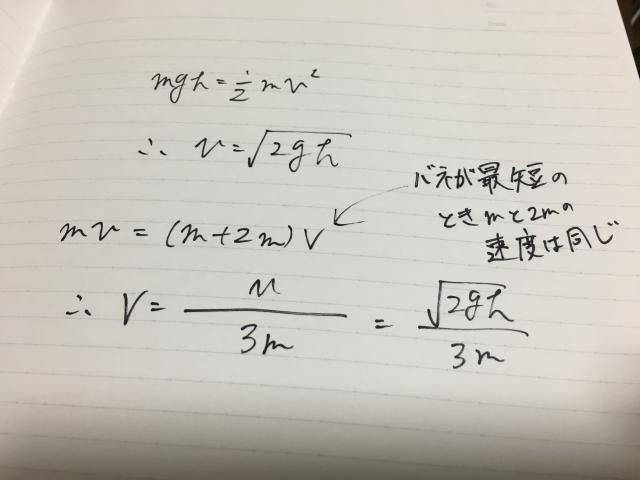 mgh = 1/2 mv²
∴ v = √2gh
バネが最短の
ときmと2mの
速度は同じ
mv = (m+2m)V
∴ V = v/3m = √2gh/3m